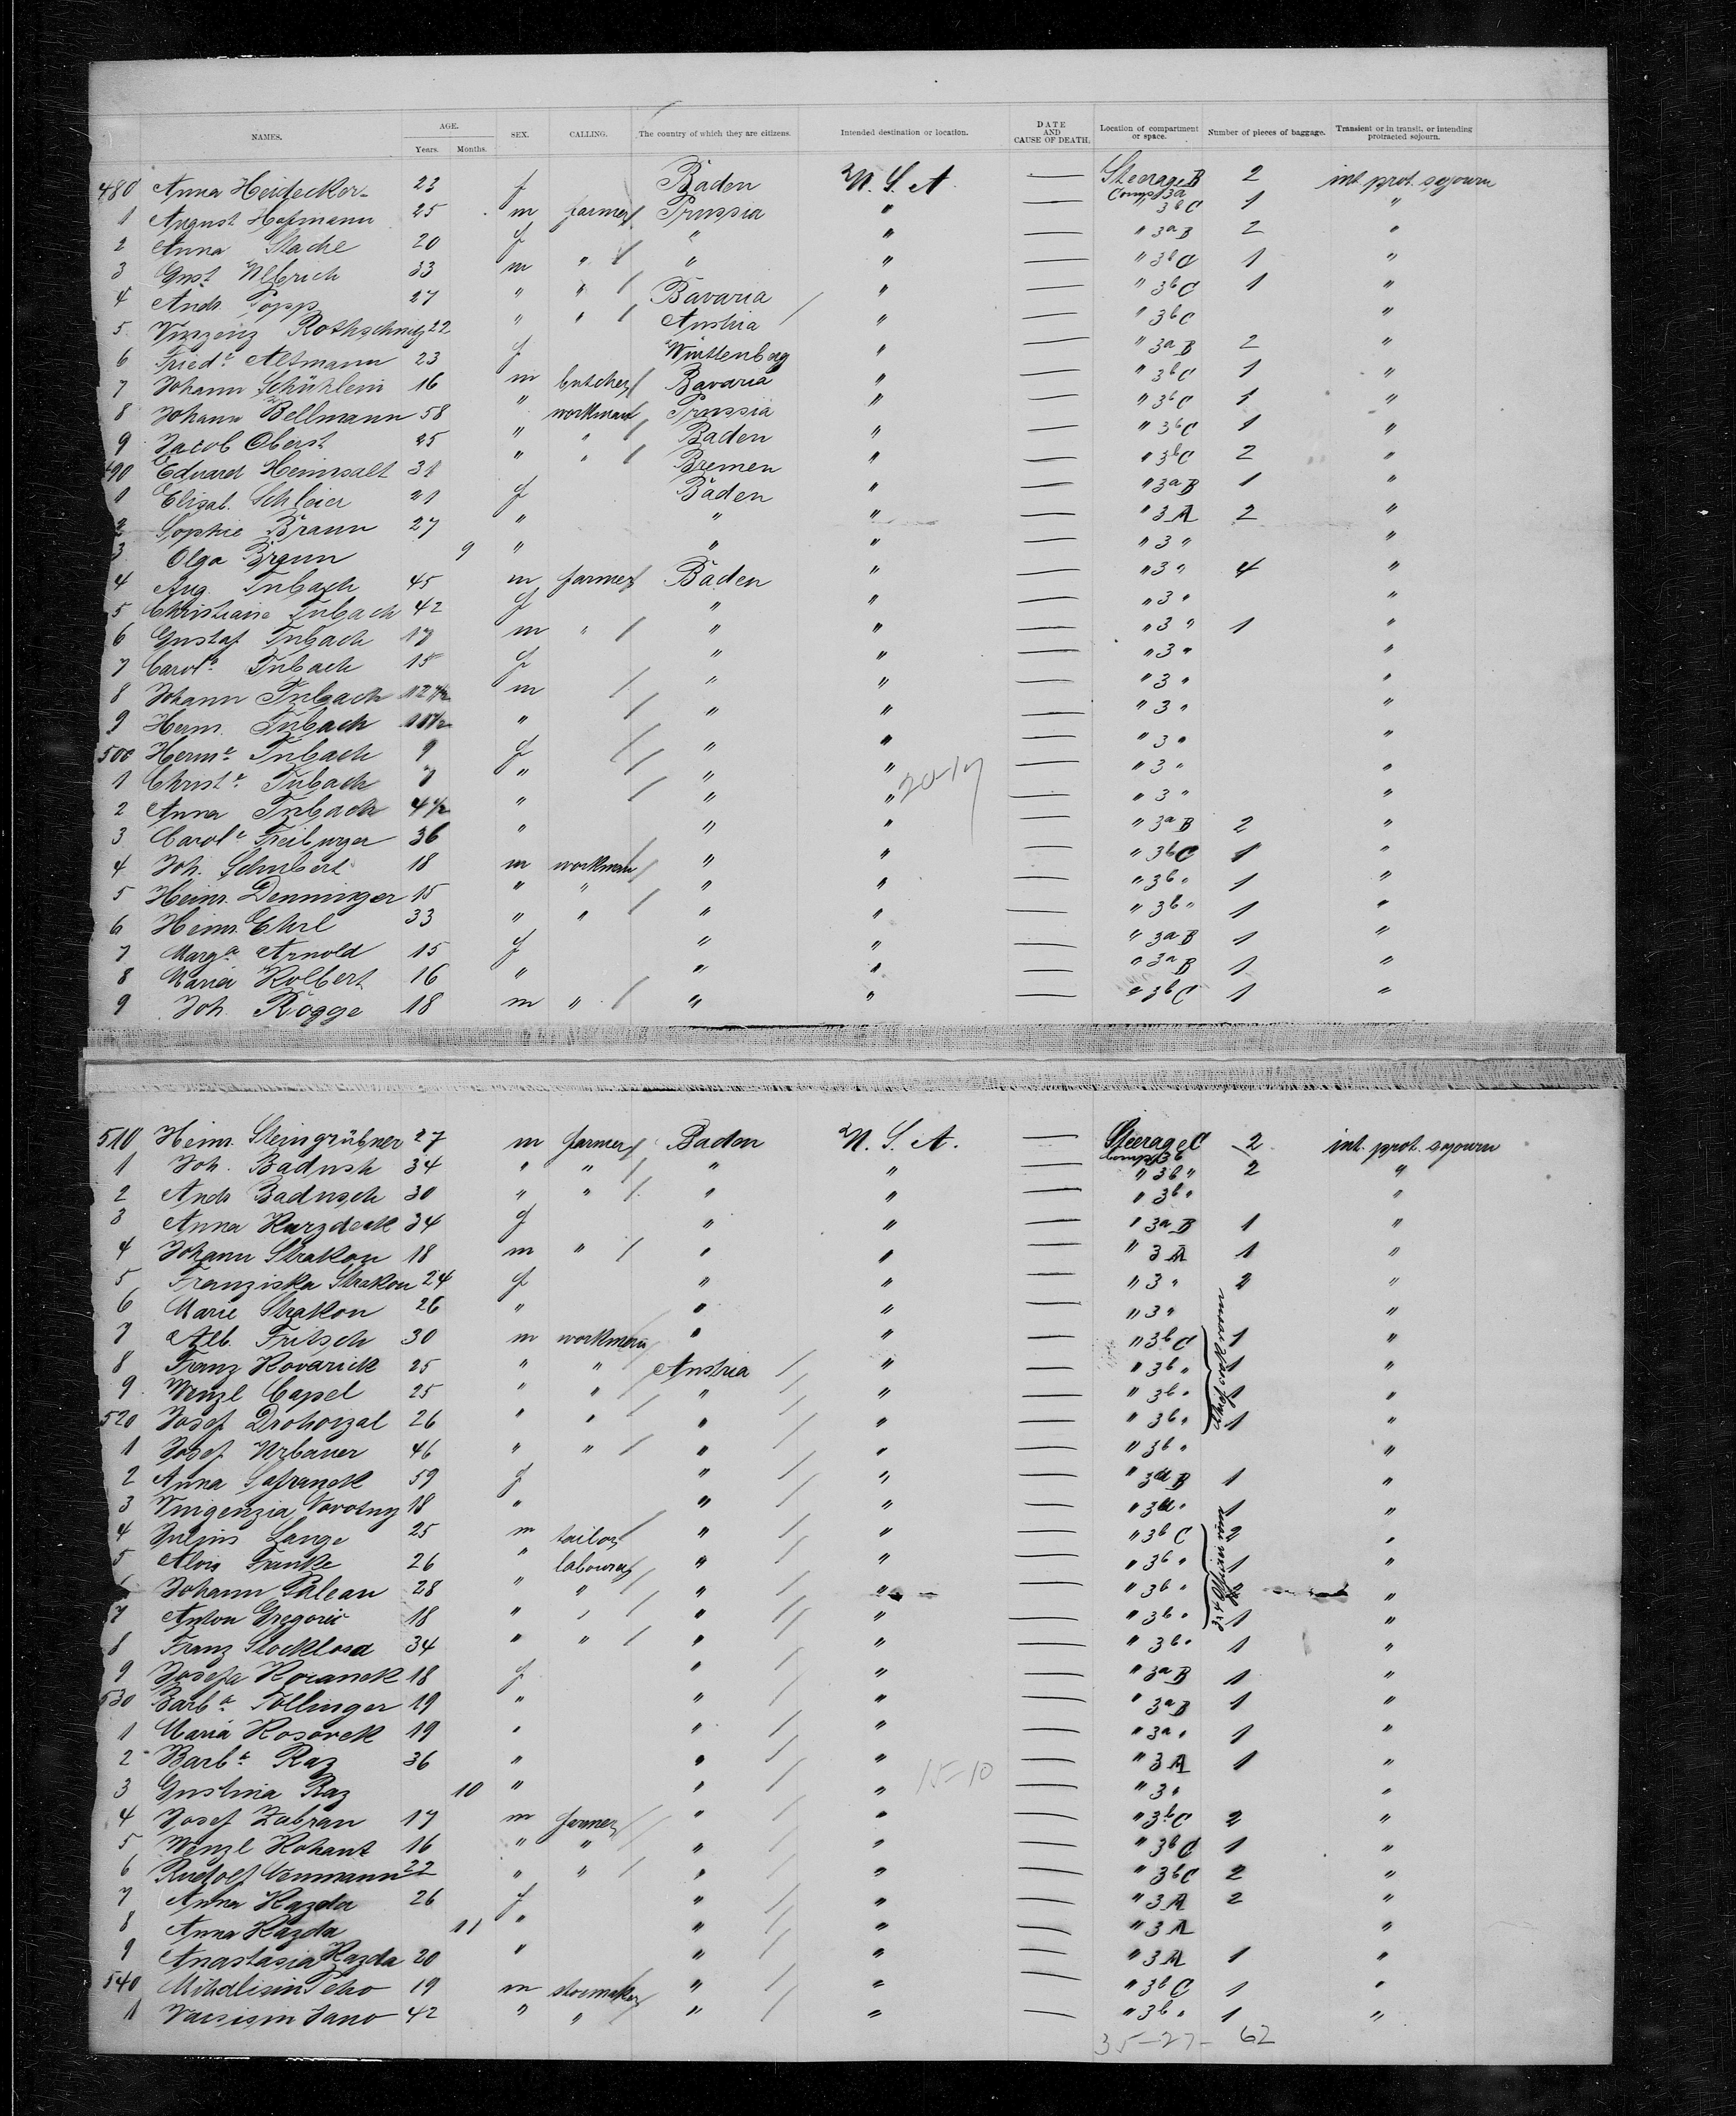 NAMES. AGE. Years. Months. SEX. CALLING. The country of which they are citizens. Intended destination or location. DATE AND CAUSE OF DEATH. Location of compartment or space. Number of pieces of baggage. Transient or in transit, or intending protracted sojourn.
480 Anna Heidecker 23 f Baden U.S.A. — Steerage B Comp 3a 2 int. prot. sojourn
1 August Hofmann 25 m farmer Prussia " — " 3b C 1 "
2 Anna Stache 20 f " " — " 3a B 2 "
3 Gust. Ulbrich 33 m " " " — " 3b C 1 "
4 Andr. Popp 27 " " Bavaria " — " 3b C 1 "
5 Vinzenz Rothschnitz 22 " " Austria " — " 3b C "
6 Fried.e Altmann 23 f Württenberg " — " 3a B 2 "
7 Johann Schüzlein 16 m butcher Bavaria " — " 3b C 1 "
8 Johann Bellmann 58 " workman Prussia " — " 3b C 1 "
9 Jacob Oberst 25 " " Baden " — " 3b C 1 "
490 Eduard Heimsalt 31 " " Bremen " — " 3b C 2 "
1 Elisab. Schleier 21 f Baden " — " 3a B 1 "
2 Sophie Braun 27 " " " — " 3 A 2 "
3 Olga Braun 9 " " " — " 3 " "
4 Aug. Inbach 45 m farmer Baden " — " 3 " 4 "
5 Christiane Inbach 42 f " " — " 3 " "
6 Gustaf Inbach 17 m " " " — " 3 " 1 "
7 Carol.e Inbach 15 f " " — " 3 " "
8 Johann Inbach 12 1/2 m " " — " 3 " "
9 Herm. Inbach " " " — " 3 " "
500 Herm.e Inbach 9 f " " — " 3 " "
1 Christ.e Inbach 7 " " " — " 3 " "
20-17
2 Anna Inbach 4 1/2 " " " — " 3 " "
3 Carol.e Freiburger 36 " " " — " 3a B 2 "
4 Joh. Schubert 18 m workman " " — " 3b C 1 "
5 Heinr. Denninger 15 " " " " — " 3b " 1 "
6 Heinr. Ehrl 33 " " " " — " 3b " 1 "
7 Marg.a Arnold 15 f " " — " 3a B 1 "
8 Maria Kolbert 16 " " " — " 3a B 1 "
9 Joh. Rögge 18 m " " " — " 3b C 1 "
510 Heinr. Steingrübner 27 m farmer Baden U.S.A. — Steerage C Comp 3b 2 int. prot. sojourn
1 Joh. Badush 34 " " " " — " 3b " 2 "
2 Andr. Badusch 30 " " " " — " 3b " "
3 Anna Kurzdeck 34 f " " — " 3a B 1 "
4 Johann Strakon 18 m " " " — " 3 A 1 "
5 Franziska Strakon 24 f " " — " 3 " 2 "
6 Marie Strakon 26 " " " — " 3 " "
7 Alb. Fritsch 30 m workman " " — " 3b C 1 "
8 Franz Kovarick 25 " " Austria " — " 3b " 1 "
9 Wenzl Capel 25 " " " " — " 3b " 1 "
520 Josef Drohoizal 26 " " " " — " 3b " 1 "
1 Josef Urbauer 46 " " " " — " 3b " "
2 Anna Safranek 59 f " " — " 3a B 1 "
3 Vinzenzia Novotny 18 " " " — " 3a " 1 "
4 Julius Lange 25 m tailor " " — " 3b C 2 "
5 Alois Franke 26 " labourer " " — " 3b " 1 "
Johann Palean 28 " " " " — " 3b " "
7 Anton Gregoric 18 " " " " — " 3b " 1 "
8 Franz Stocklosa 34 " " " " — " 3b " 1 "
9 Josefa Koranek 18 f " " — " 3a B 1 "
530 Barb.a Tollinger 19 " " " — " 3a B 1 "
1 Maria Kosorek 19 " " " — " 3a " 1 "
2 Barb.a Raz 36 " " " — " 3 A 1 "
15-10
3 Gustina Raz 10 " " " — " 3 " "
4 Josef Zabran 17 m farmer " " — " 3b C 2 "
5 Wenzl Kohant 16 " " " " — " 3b C 1 "
6 Rudolf Venmann 22 " " " " — " 3b C 2 "
7 Anna Kazda 26 f " " — " 3 A 2 "
8 Anna Kazda 11 " " " — " 3 A "
9 Anastasia Kazda 20 " " " — " 3 A 1 "
540 19 m shoemaker " " — " 3b C 1 "
1 Jano 42 " " " " — " 3b " 1 "
35-27- 62